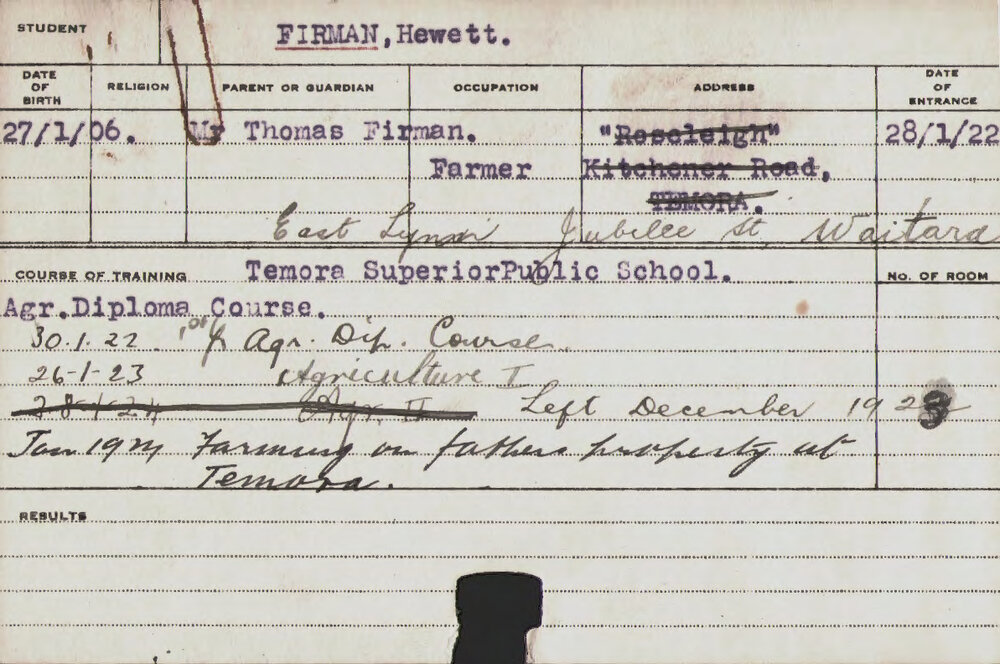 STUDENT FIRMAN, Hewett.
DATE OF BIRTH RELIGION PARENT OR GUARDIAN OCCUPATION ADDRESS DATE OF ENTRANCE
27/1/06. Mr Thomas Firman. "Roseleigh" 28/1/22
Farmer Kitchener Road,
TEMORA.
East Jubilee St, Waitara
COURSE OF TRAINING Temora SuperiorPublic School. No. OF ROOM
Agr.Diploma Course.
30.1.22. Agr. Dip. Course.
26-1-23 Agriculture I
28-1-24 Agr. II Left December 1923
Jan 1924 Farming on fathers property at
Temora.
RESULTS